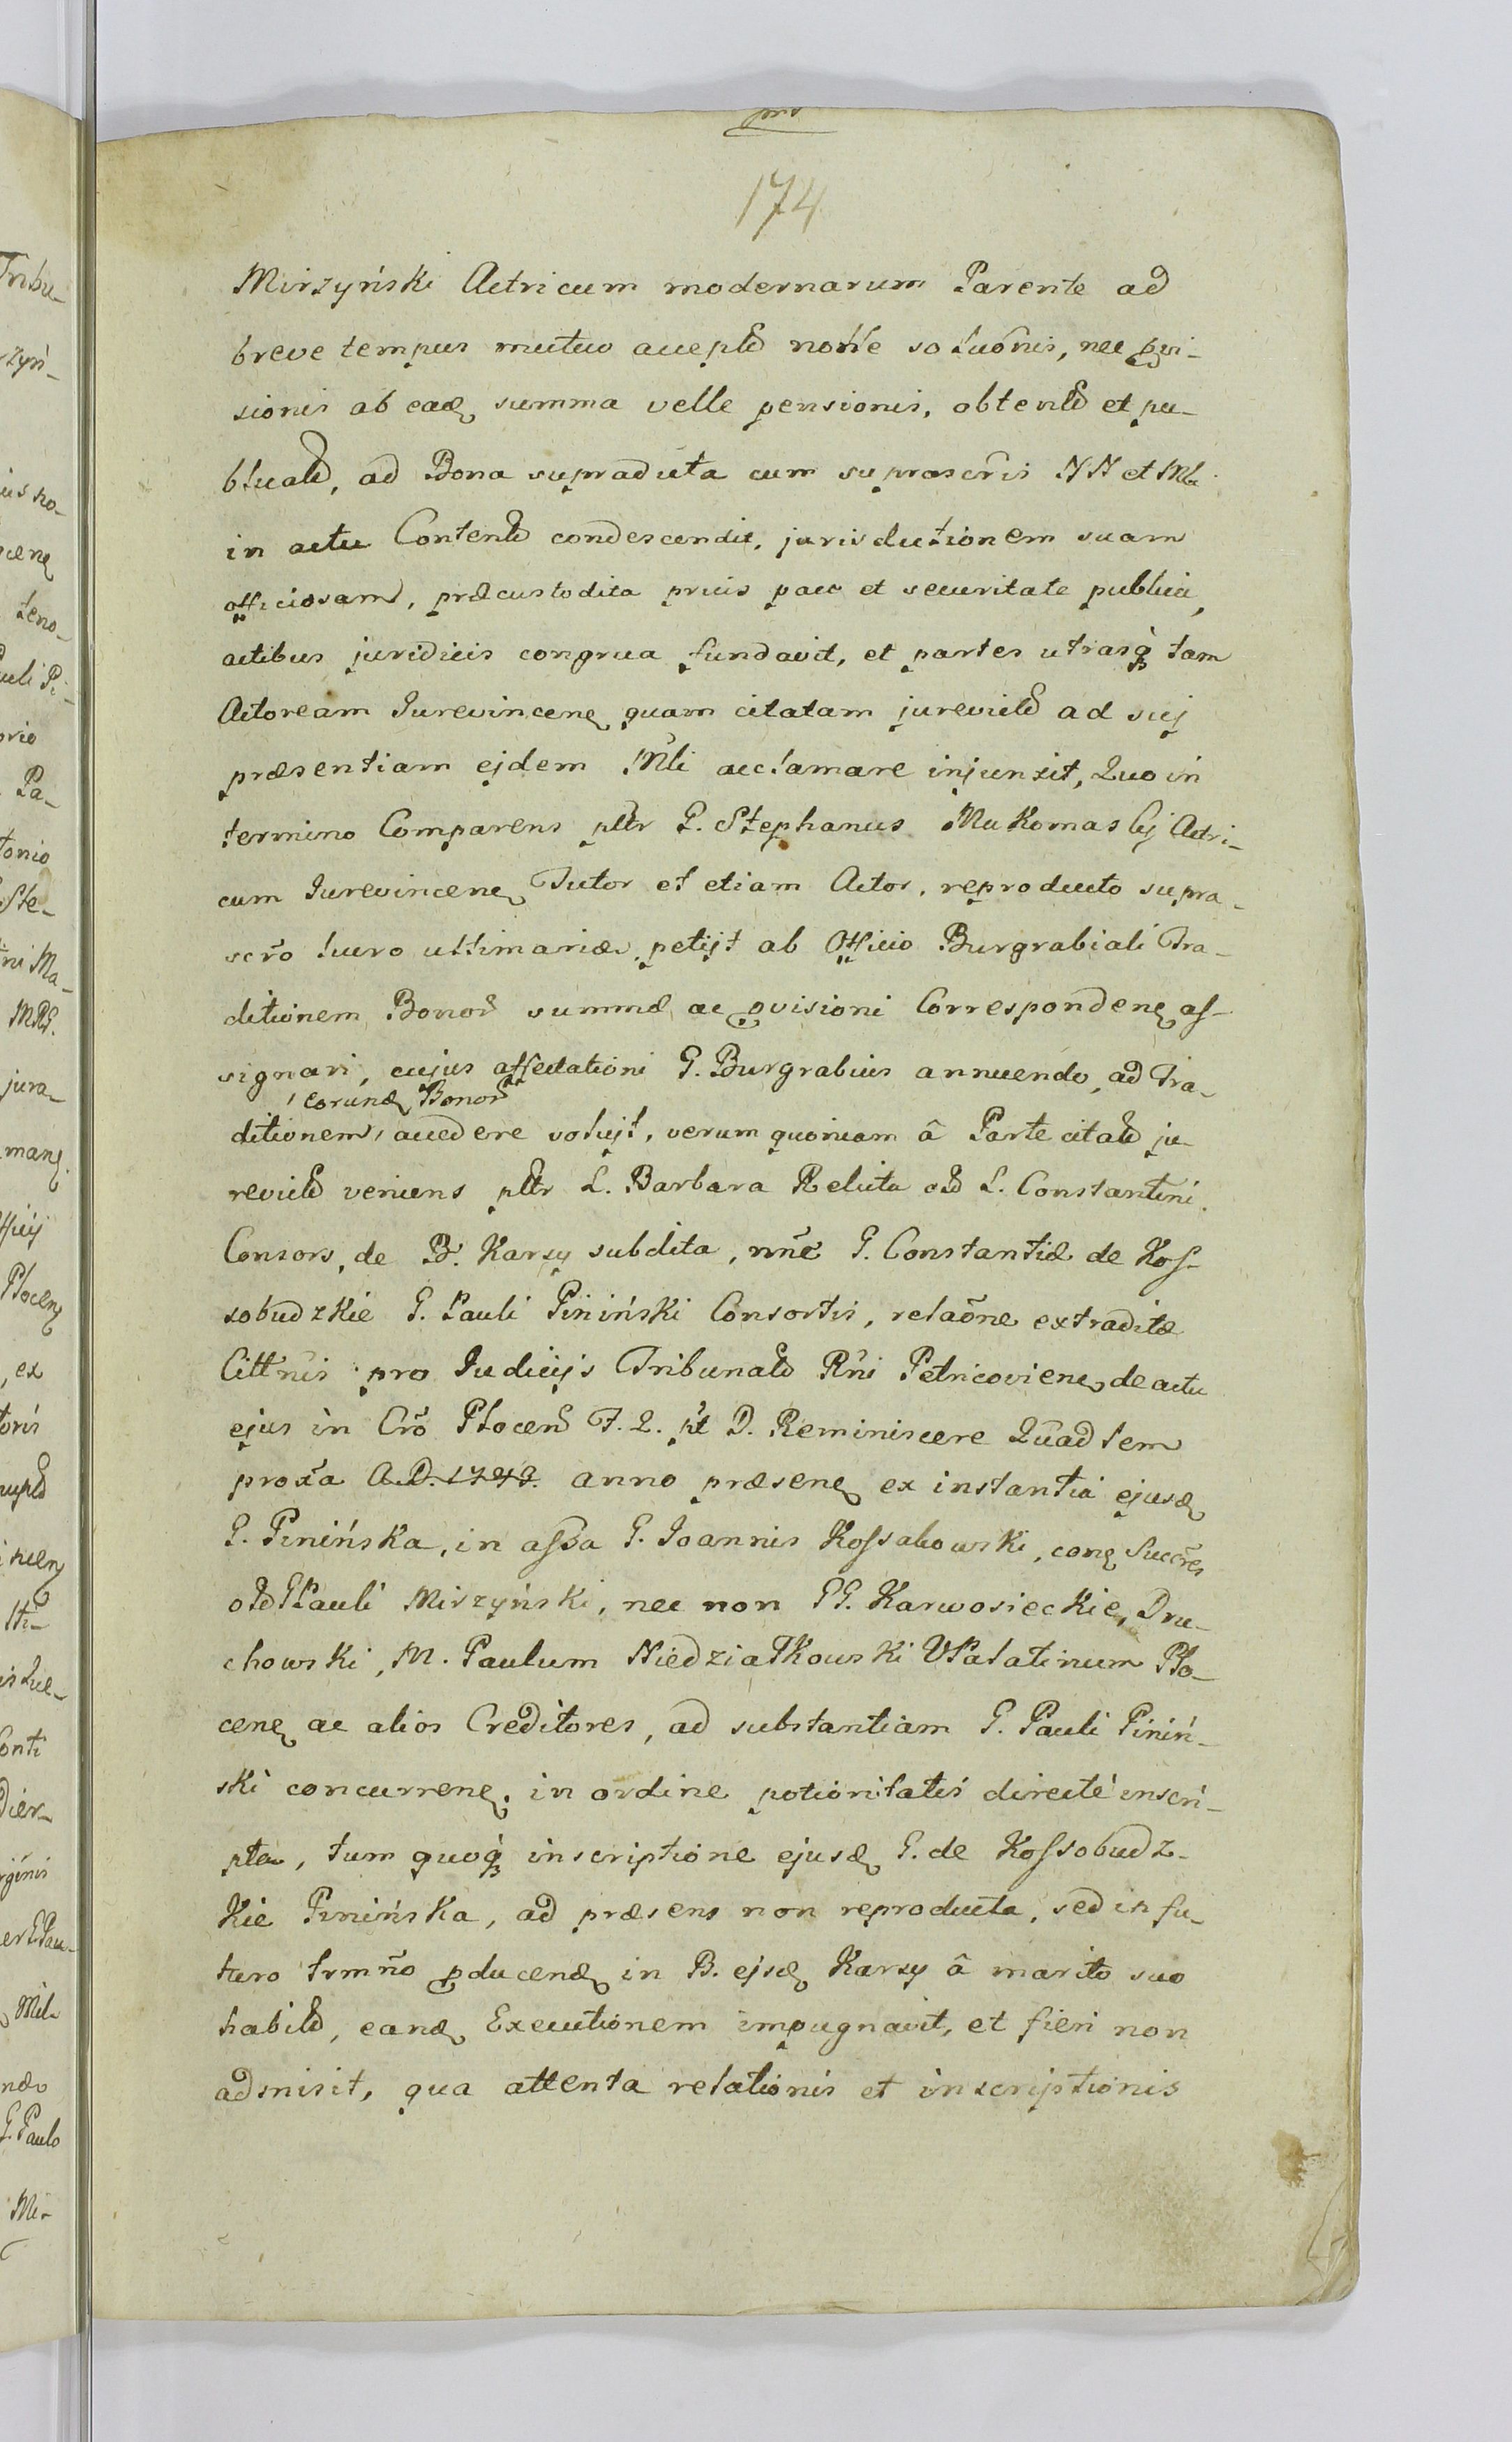 174
Mirzyński Actricum modernarum Parente ad
breve tempus mutuo accepta noñe soluõnis, nec provi-
sionis ab eadem summa velle pensionis, obtenta et pu-
blicata, ad Bona supradicta cum suprascris NN et Mli
in actu Contenta condescendit, jurisdictionem suam
officiosam, præcustodita prius pace et securitate publica,
actibus juridicis congrua fundavit, et partes utrasq tam
Actoream Jurevincenę quam citatam jurevicta ad suj
præsentiam ejdem Mli acclamare injunxit, Quo in
termino Comparens pltr G. Stephanus Mukomasky Actri-
cum Jurevincenę Tutor et etiam Actor, reproducto supra-
scr̃o lucro ultimariæ, petijt ab Officio Burgrabiali Tra-
ditionem Bonor summæ ac provisioni Correspondenę aſ-
signari, cujus affectationi G. Burgrabius annuendo, ad Tra-
eorundę Bonor
ditionem accedere voluit, verum quoniam â Parte citata ju-
revicta veniens pltr L. Barbara Relicta L. Constantini
Consors, de B. Karsy subdita, nñe G. Constantiæ de Koſ-
sobudzkie G. Pauli Pininski Consortis, relaõne extraditæ
Cittnis pro Judicijs Tribunal Rñi Petricovienę de actu
ejus in Crõ Plocen F. 2. pt D. Reminiscere Quad lem
prox̃a A.D. 1743. anno præsenę ex instantia ejusdę
G. Pinińska, in aſsa G. Joannis Koſsakowski, conę Succres
G Pauli Mirzyński, nec non GG. Karwosieckie, Dru-
chowski, M. Paulum Niedziałkowski VPalatinum Plo-
cenę ac alios Creditores, ad substantiam G. Pauli Piniń-
ski concurrenę, in ordine potioritatis directé inscri-
pta, tum quoq inscriptione ejusdę G. de Koſsobudz-
kie Pininska, ad præsens non reproducta, sed in fu-
turo trmño producendę in B. ejsdę Karsy â marito suo
habita, eandę Executionem impugnavit, et fieri non
admisit, qua attenta relationis et inscriptionis